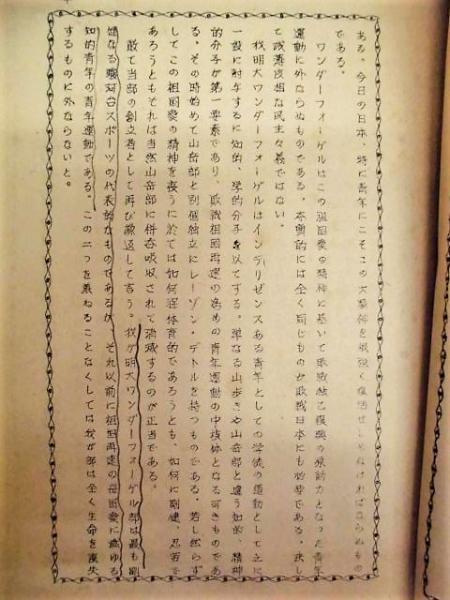 ある、今日の日本、特に青年にこそこの大事件を根強く復活せしめなければならぬもの
である。
　ワンダーフォーゲルはこの祖国愛の精神に基いて敗戦独乙復興の原動力となった青年
運動に外ならぬものである。本質的には全く同じものが敗戦日本にも必要である。決し
て浅薄皮相な民主々義ではない。
　我明大ワンダーフォーゲルはインテリゼンスある青年としての学徒の運動として之に
一般に対するに知的、学的分子を以てする。単なる山歩きや山岳部と違う知的、精神
的分子が第一要素であり、敗戦祖国再建の為めの青年運動の中核体となる可きものであ
る。その時始めて山岳部と別個独立にレーゾン・デトルを持つものである。若し然らず
してこの祖国愛の精神を喪うに於ては如何程体育的であろうとも、如何に剛健、忍苦で
あろうともそれは当然山岳部に併呑吸収されて消滅するのが正当である。
　敢て当部の創立者として再び繰返して言う。我が明大ワンダーフォーゲル部は最も剛
健なる駿河台スポーツの代表的なものであるが、それ以前に祖国再建の祖国愛に燃ゆる
知的青年の青年運動である。この二つを兼ねることなくしては我が部は全く生命を喪失
するものに外ならないと。